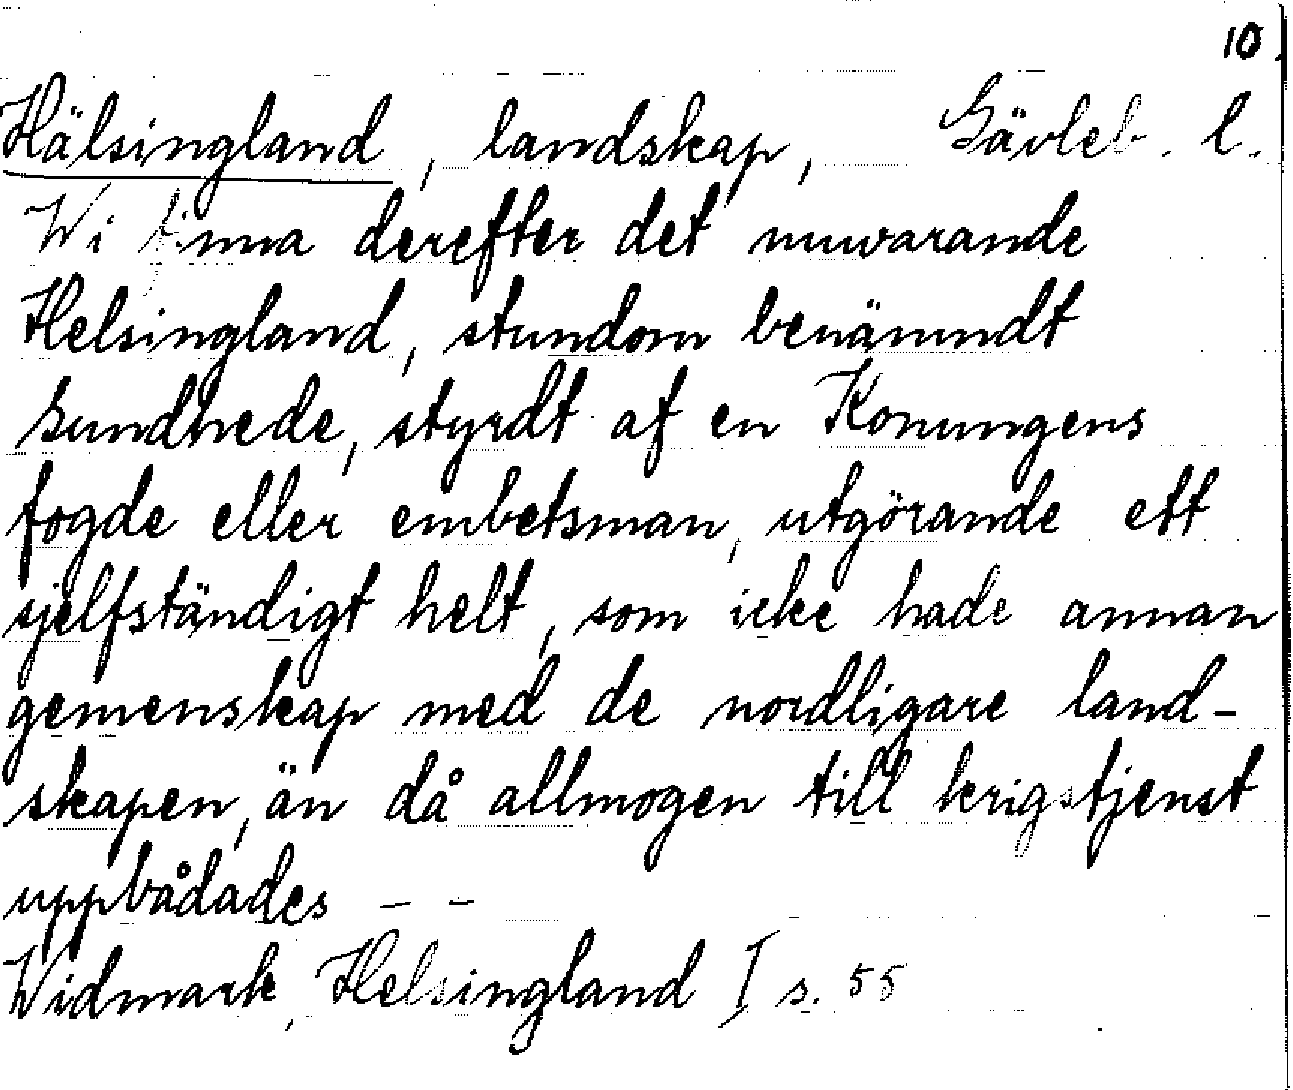 10.
Hälsingland, landskap, Gävleb. l.
Wi finna derefter det nuwarande
Helsingland, stundom benämndt
Sundhede, styrdt af en Konungens
fogde eller embetsman, utgörande ett
sjelfständigt helt, som icke hade annan
gemenskap med de nordligare land-
skapen, än då allmogen till krigstjenst
uppbådades - -
Widmark, Helsingland I s. 55